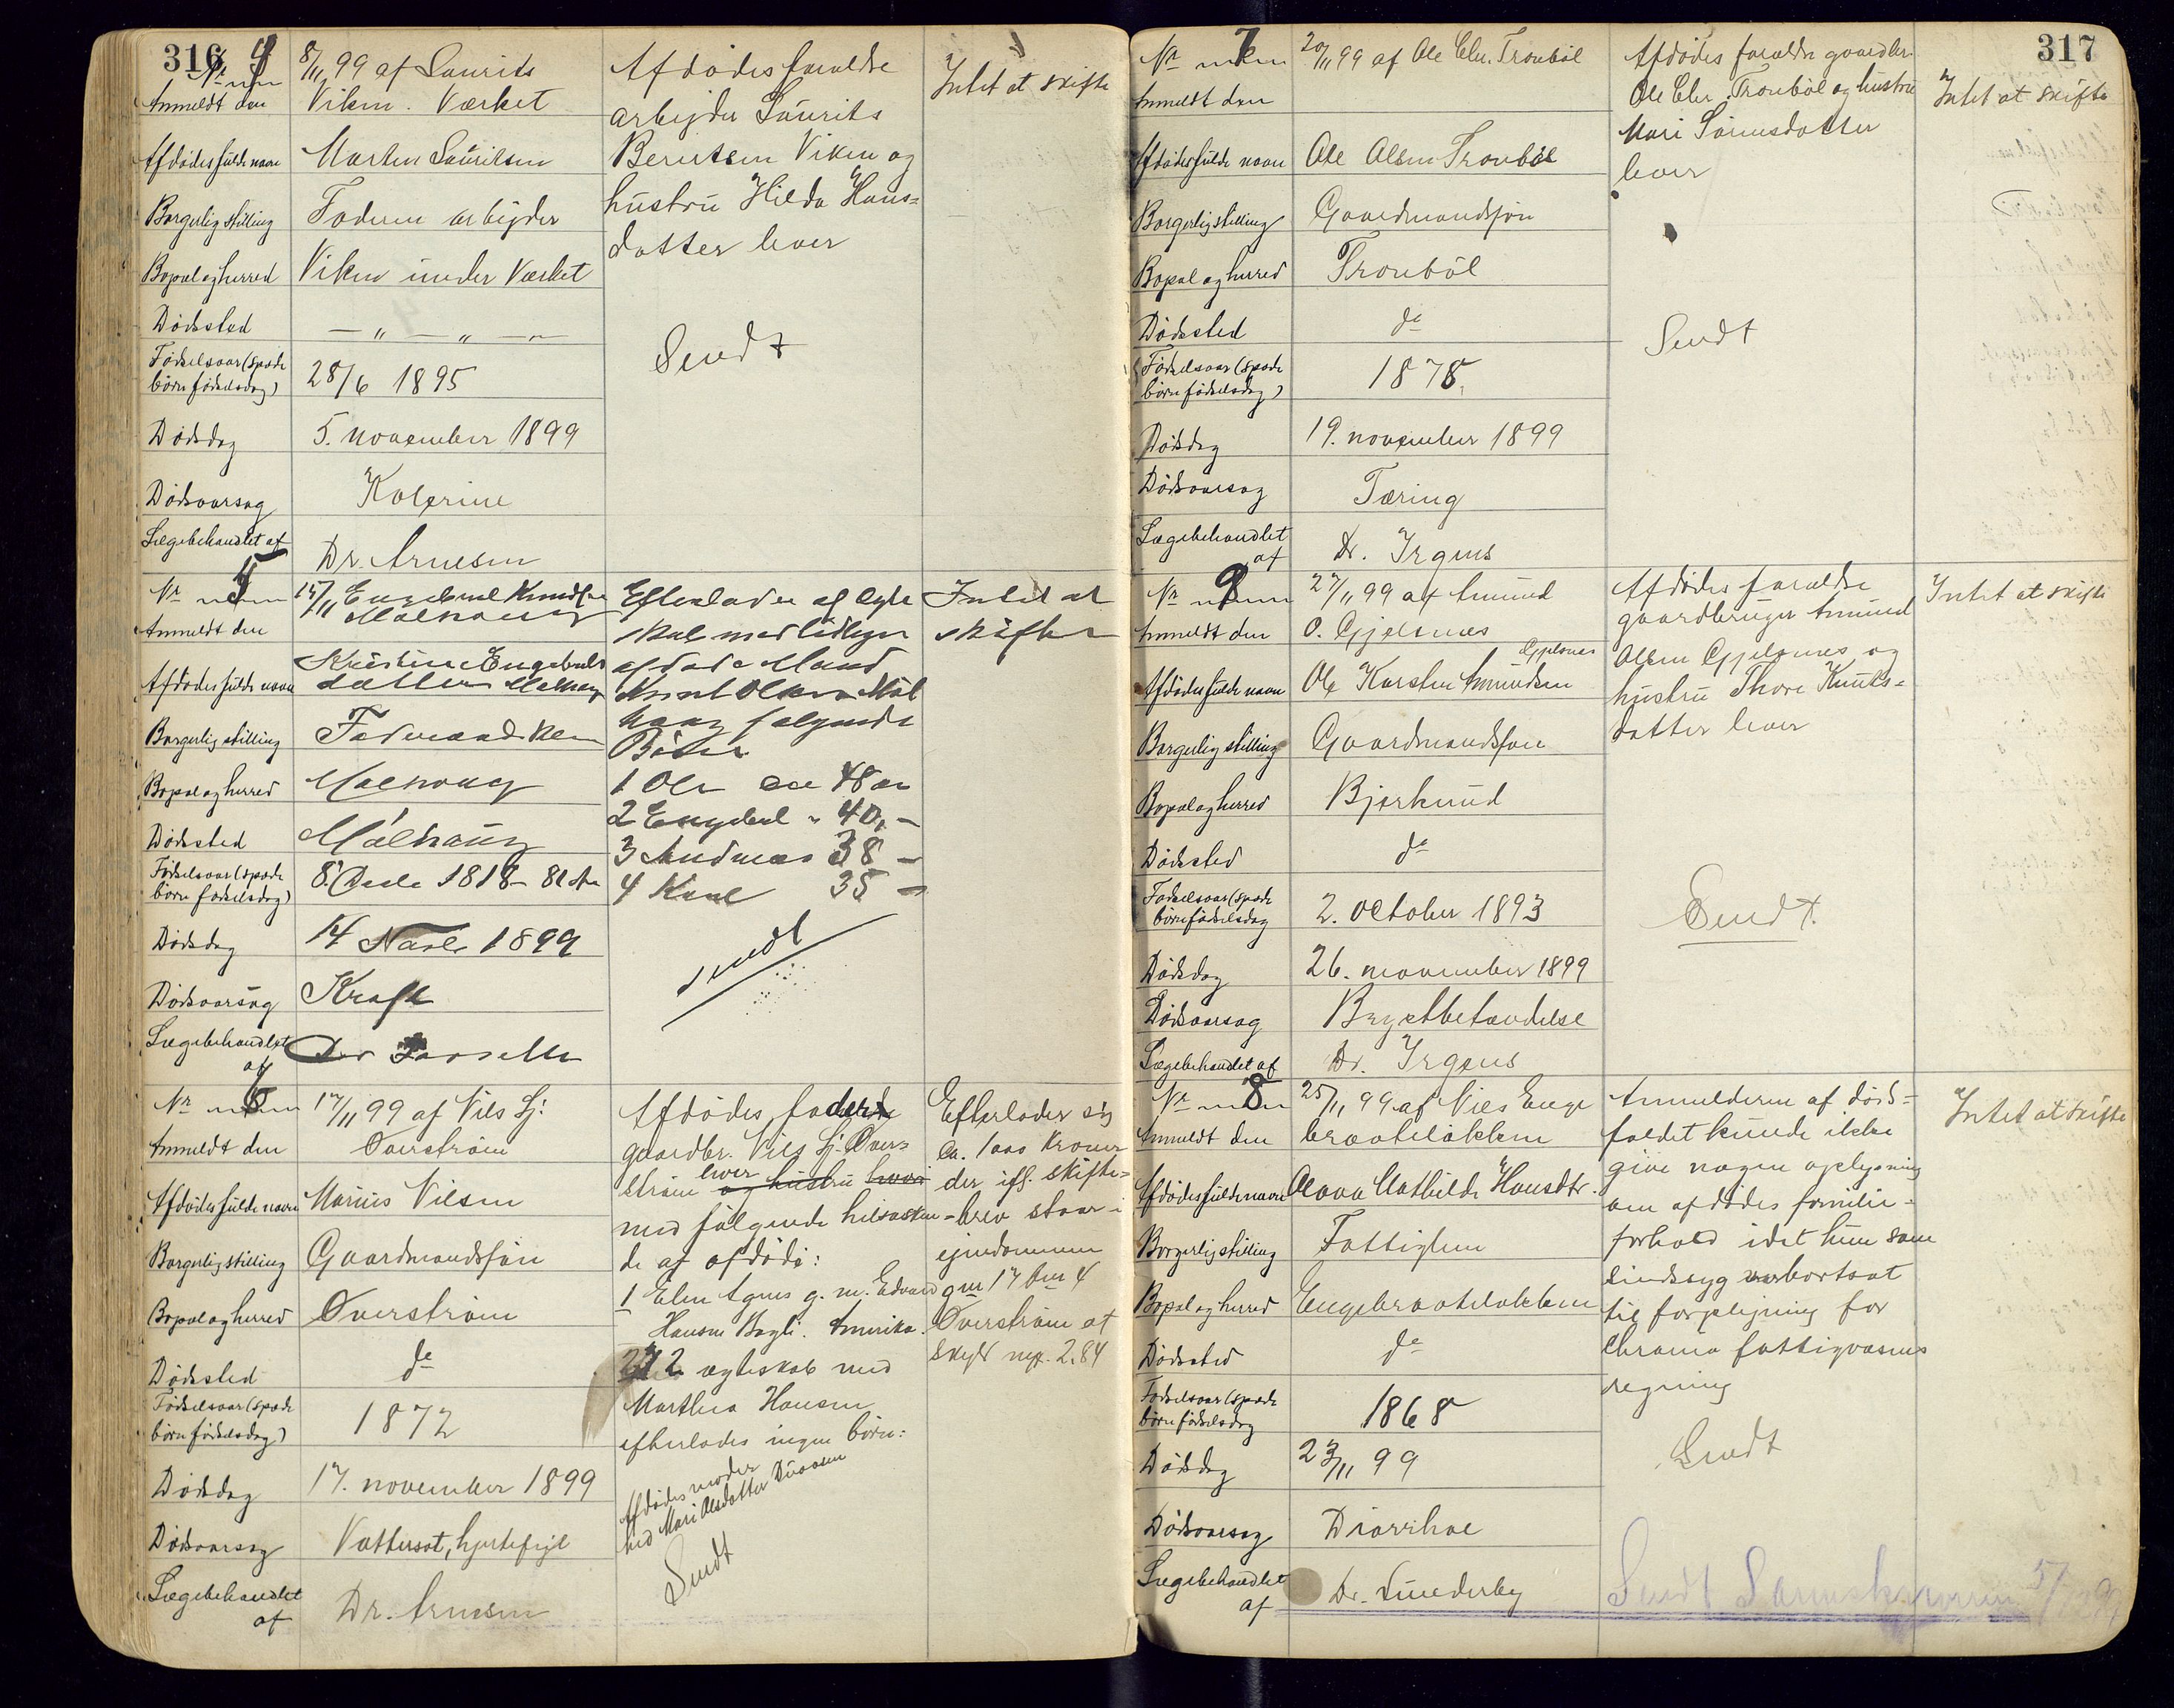 316
Nr 4
8/11 99 af Laurits
Anmeldt den
Viken. Værket
Afdødes fulde navn
Marten Lauritsen
Borgerlig stilling
Faderen arbejder
Bopæl og herred
Viken under Værket
Dødssted
— " — " —
Fødselsaar (spæde
børn fødselsdag)
28/6 1895
Dødsdag
5. november 1899
Dødsaarsag
Kolerine
Lægebehandlet af
Dr. Arnesen
Afdødes forældre
arbejder Laurits
Berntsen Viken og
hustru Hilda Hans=
datter lever
Sendt
Intet at skifte
Nr 5
15/11 Engebret Knudsen
Målhaug
Anmeldt den
Afdødes fulde navn
Kristine Engebrets
datter Målhaug
Borgerlig stilling
Bopæl og herred
Målhaug
Dødssted
Målhaug
Fødselsaar (spæde
børn fødselsdag)
8. 1818 - 81
Dødsdag
14 Novbr 1899
Dødsaarsag
Kræft
Lægebehandlet
af
Efterlader af egte
skab med tidligere
afdøde Mand
Knut Olsen Mål
haug følgende
Børn
1 Ole 48 år
2 Engebret " 40, —
3 Andreas 38 —
4 Karl 35 —
sendt
Intet at
skifte
Nr 6
17/11 99 af Nils Lj:
Anmeldt den
Øverstrøm
Afdødes fulde navn
Marius Nilsen
Borgerlig stilling
Gaardmandssøn
Bopæl og herred
Øverstrøm
Dødssted
do
Fødselsaar (spæde
børn fødselsdag)
1872
Dødsdag
17. november 1899
Dødsaarsag
Vattersot, hjertefejl
Lægebehandlet
af
Dr. Arnesen
Afdødes fader
gaardbr. Nils Lj: Øver=
strøm lever og hustru lever
med følgende helsøsken=
de af afdøde:
1 Elen Agnes g. m. Edvard
Hansen Bagli. Amerika.
I 2 ægteskab med
Marthea Hansen
efterlades ingen børn:
Afdødes moder
hed Mari Olsdatter
Sendt
Efterlader sig
ca. 1000 kroner
der ifl. skifte=
brev staar i
ejendommen
gnr 17 bnr 4
Øverstrøm af
skyld mrk. 2.84
317
Nr 7
20/11 99 af Ole Chr. Tronbøl
Anmeldt den
Afdødes fulde navn
Ole Olsen Tronbøl
Borgerlig stilling
Gaardmandssøn
Bopæl og herred
Tronbøl
Dødssted
do
Fødselsaar (spæde
børn fødselsdag)
1878.
Dødsdag
19. november 1899
Dødsaarsag
Tæring
Lægebehandlet
af
Dr. Irgens
Afdødes forældre gaardbr.
Ole Chr. Tronbøl og hustru
Mari Sørensdatter
lever
Sendt
Intet at skifte
Nr 9
27/11 99 af Amund
Anmeldt den
O. Gjelsnes
Afdødes fulde navn
Ole Karsten Amundsen Gjelsnes
Borgerlig stilling
Gaardmandssøn
Bopæl og herred
Bjerkerud
Dødssted
do
Fødselsaar (spæde
børn fødselsdag
2. October 1893
Dødsdag
26. november 1899
Dødsaarsag
Brystbetændelse
Lægebehandlet af
Dr. Irgens
Afdødes forældre
gaardbruger Amund
Olsen Gjelsnes og
hustru Thore Knuts=
datter lever
Sendt.
Intet at skifte
Nr 8
25/11 99 af Nils Enge
Anmeldt den
braateløkken
Afdødes fulde navn
Olava Mathilde Hansdtr.
Borgerlig stilling
Fattiglem
Bopæl og herred
Engebraateløkken
Dødssted
do
Fødselsaar (spæde
børn fødselsdag
1868
Dødsdag
23/11 99
Dødsaarsag
Diarrhae
Lægebehandlet
af
Dr. Sunderby
Anmelderen af døds=
faldet kunde ikke
give nogen oplysning
om afdødes familie=
forhold idet hun som
sindssyg var bortsat
til forplejning for
Chrania fattigvæsens
regning
Sendt
Intet at skifte
Sendt Sorenskriveren